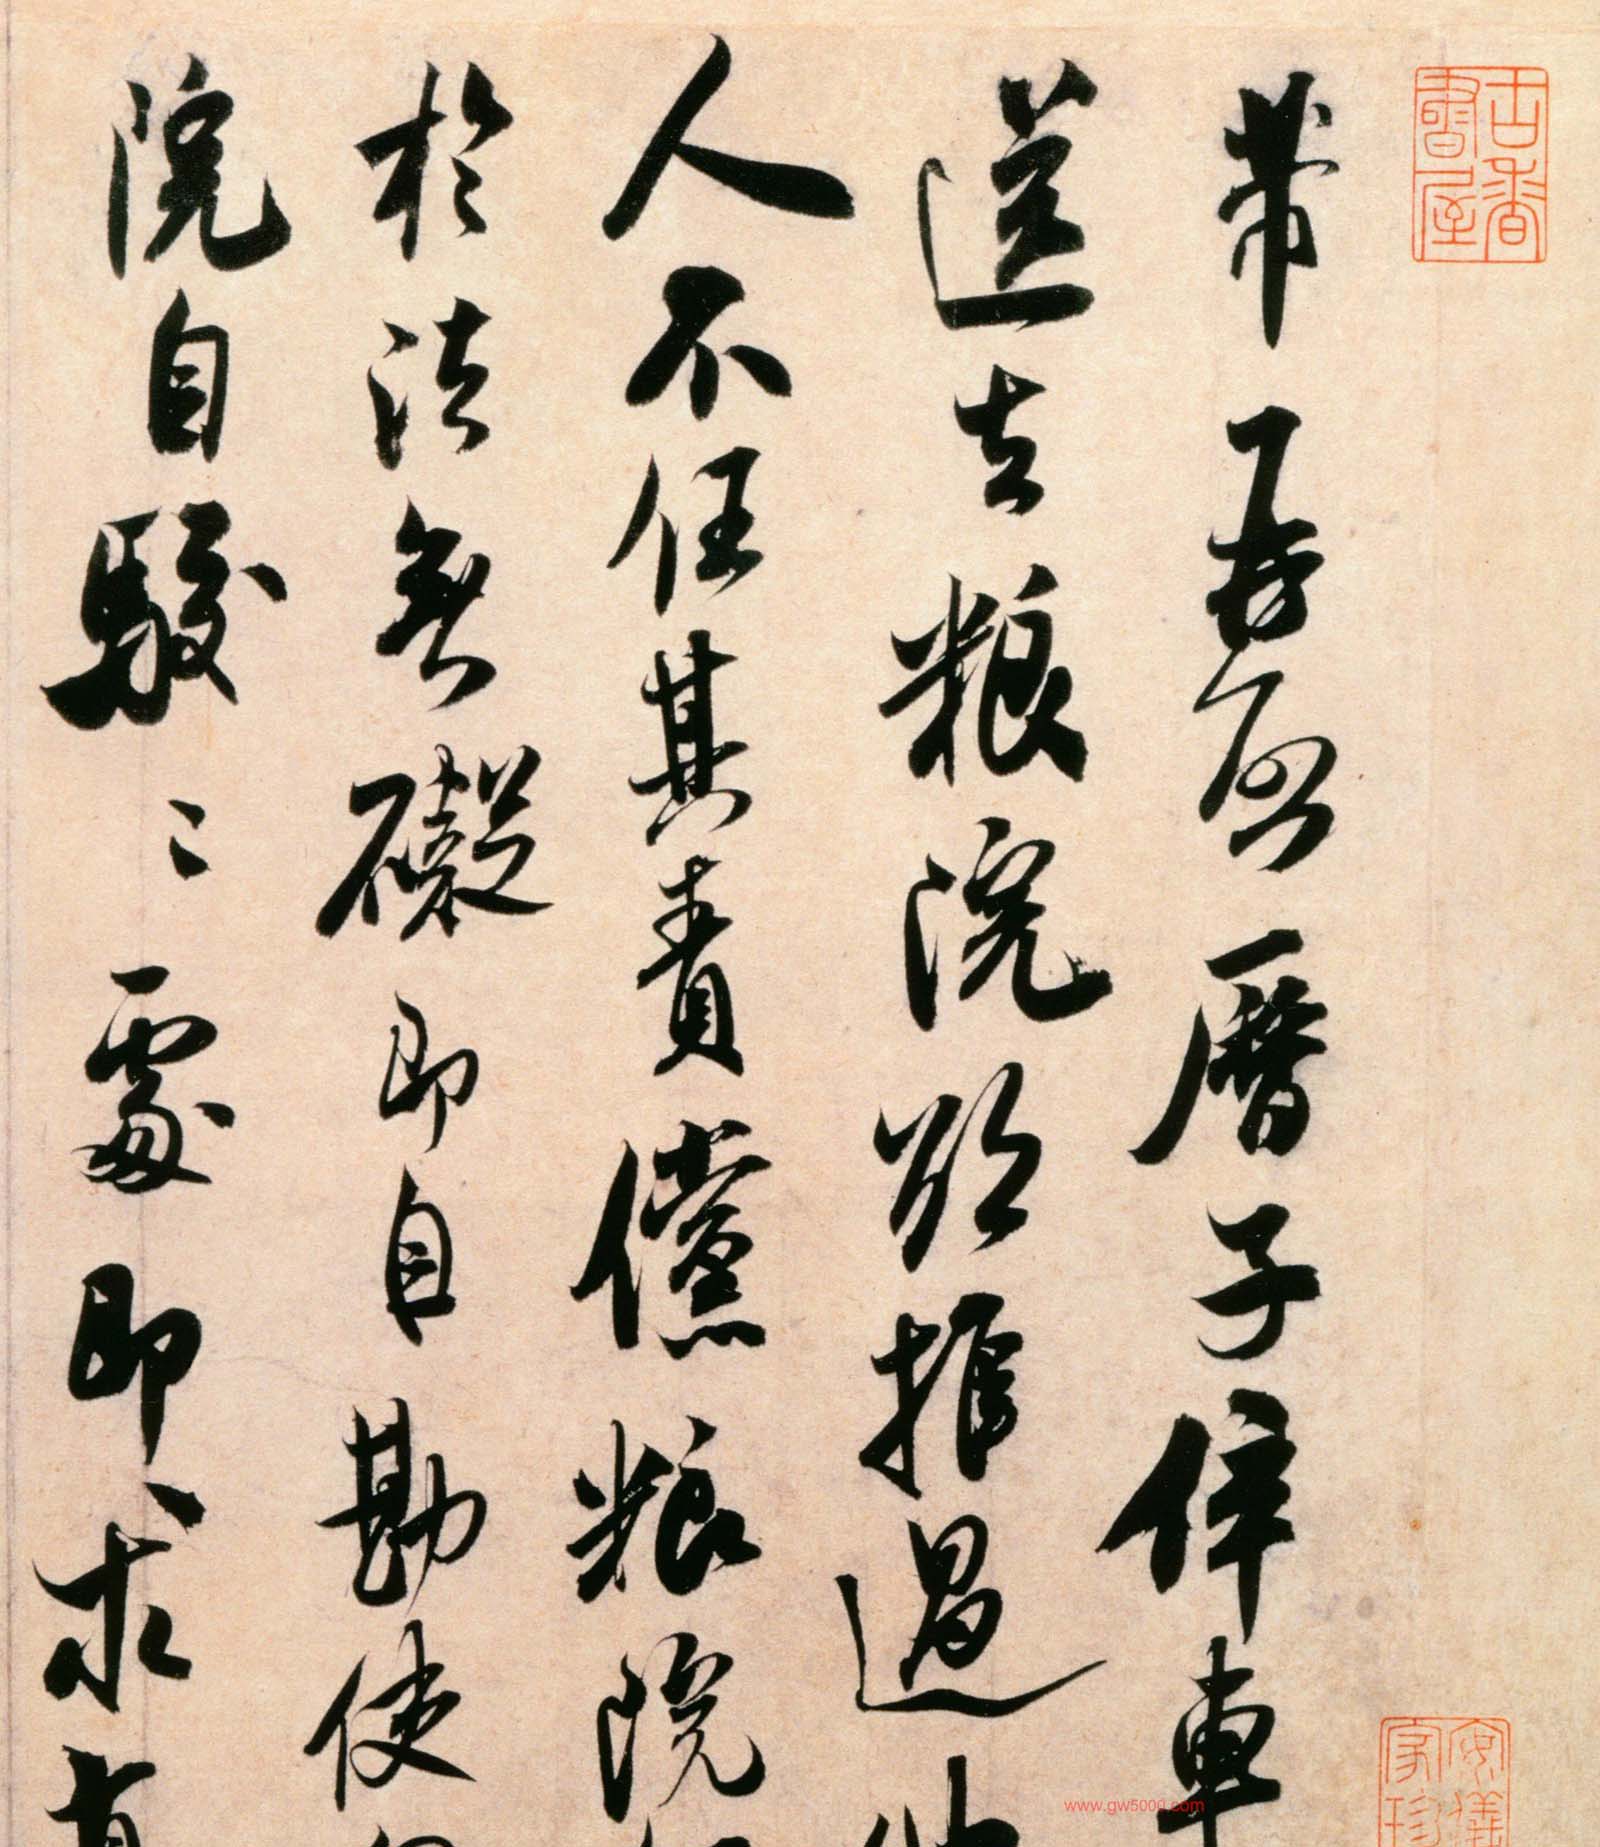 古香書屋
芾再啓曆子倅車
送去粮院欲推過他
人不任其責儻粮院
於法無礙即自勘使
院自駮〻處即求有
安儀
家珍
www.gw5000.com